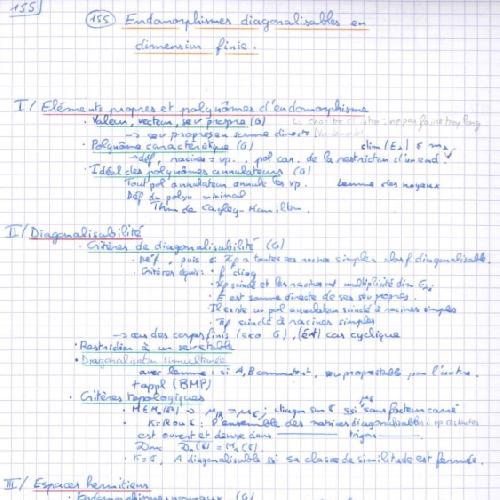 155
155 Endomorphismes diagonalisables en
dimension finie.
I/ Eléments propres et polynômes d'endomorphisme
• Valeur, vecteur, sev propre (G)
→ sev propres en somme directe
• Polynôme caractéristique (G) dim(Eλ) ≤ mλ
→ déf, racines = vp. , pol car. de la restriction d'un end.
• Idéal des polynômes annulateurs (G)
Tout pol annulateur annule les vp. Lemme des noyaux
Déf du polyn minimal
Thm de Cayley-Hamilton
II/ Diagonalisabilité
• Critères de diagonalisabilité (G)
• Déf, puis si a toutes ses racines simples alors f diagonalisable.
• Critères équiv : • f diag
scindé et les racines ont multiplicité dim
• E est somme directe de ses sev propres
Il existe un pol annulateur scindé à racines simples
scindé à racines simples
→ cas des corps finis (exo G), cas cyclique
• Restriction à un sev stable
• Diagonalisation simultanée
avec lemme : si A, B commutent, sev propre stable par l'autre.
+ appl (BMP)
• Critères topologiques
• K = R ou C : l'ensemble des matrices diagonalisables
est ouvert et dense dans
Donc
K = C, A diagonalisable si sa classe de similitude est fermée.
III/ Espaces hermitiens
• Endomorphismes normaux (G)